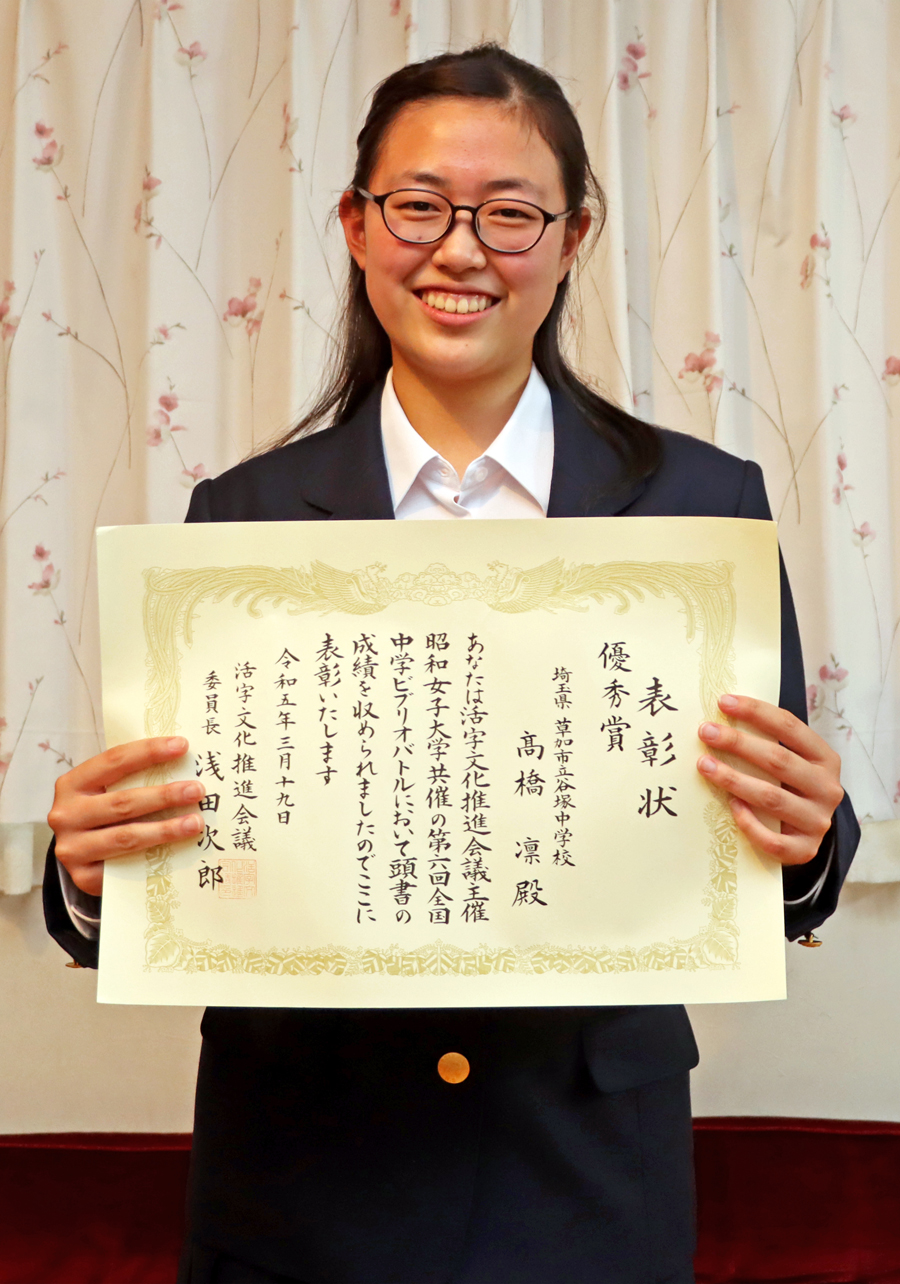 表彰状
優秀賞
埼玉県 草加市立谷塚中学校
髙橋 凛 殿
あなたは活字文化推進会議主催
昭和女子大学共催の第六回全国
中学ビブリオバトルにおいて頭書の
成績を収められましたのでここに
表彰いたします
令和五年三月十九日
活字文化推進会議
委員長 浅田次郎